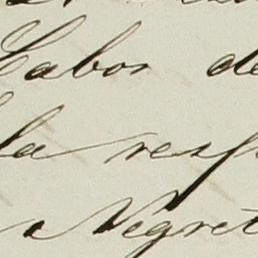 Labor de
la resp
a Negret